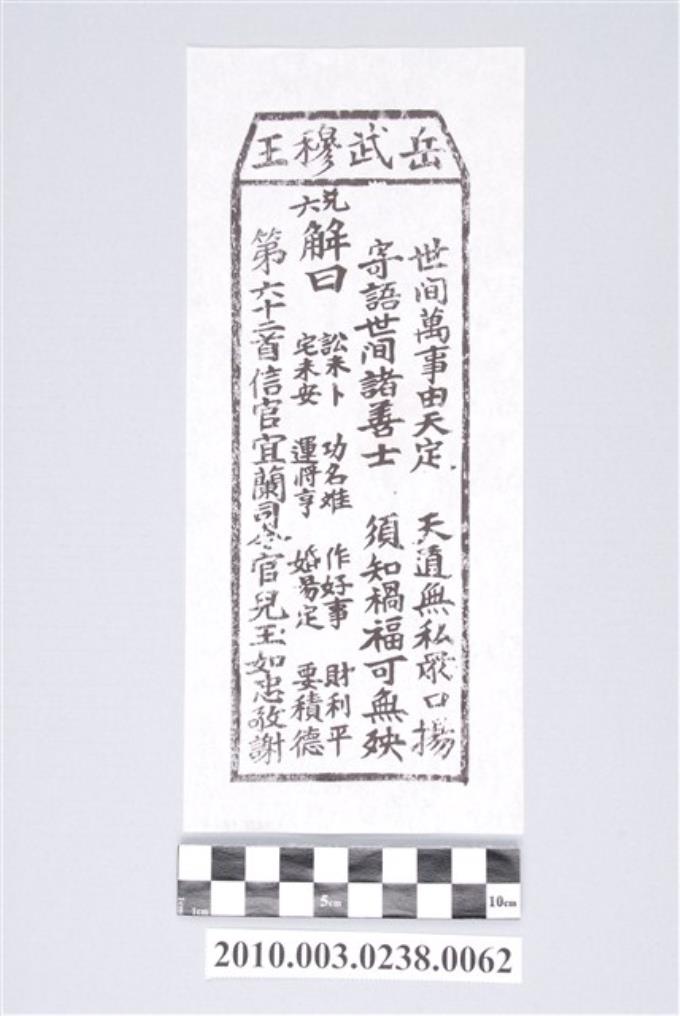 岳武穆王
世间萬事由天定　天道無私眾口揚
寄語世间諸善士　須知禍福可無殃
兑六
解曰
訟未卜　功名难　作好事　財利平
宅未安　運將亨　婚易定　要積德
第六十二首信官宜蘭司令官兒玉如忠敬謝
5cm
10cm
1cm
2010.003.0238.0062